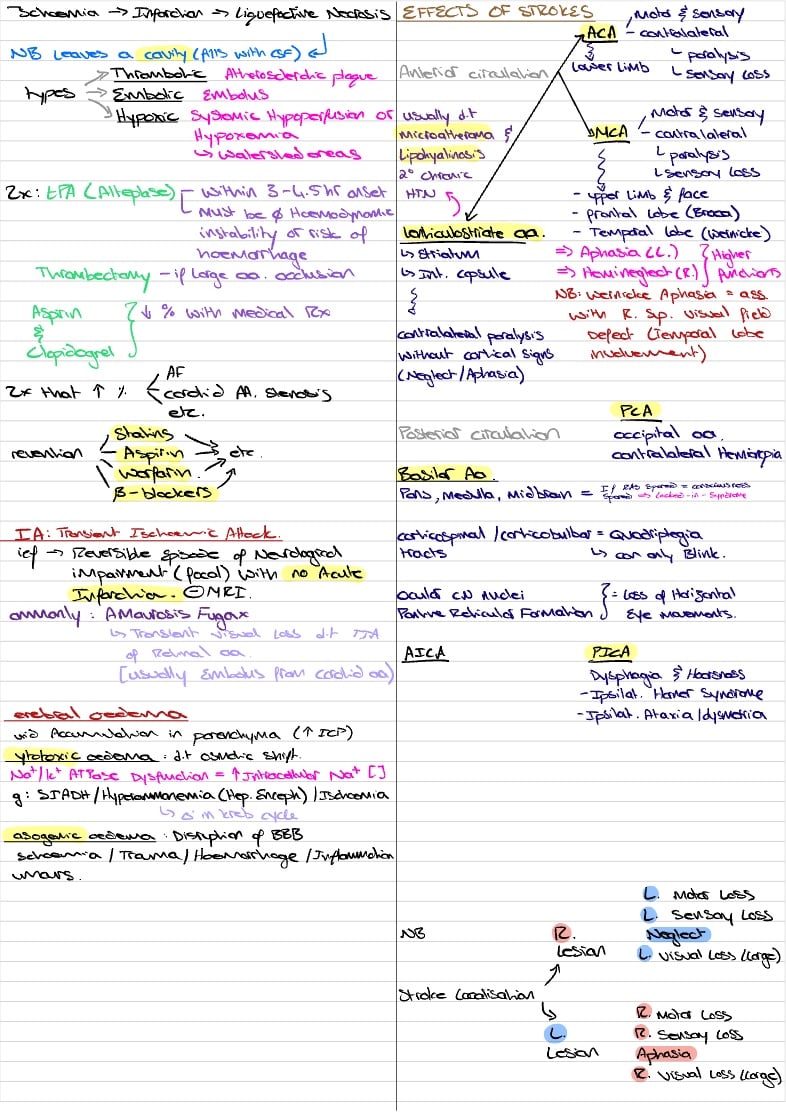 Ischaemia → Infarction → Liquefective Necrosis
NB Leaves a cavity (fills with CSF)
types → Thrombotic Atherosclerotic plaque
→ Embolic Embolus
→ Hypoxic Systemic Hypoperfusion or
Hypoxemia
↳ watershed areas
Rx: tPA (Alteplase) – within 3-4.5hr onset
– Must be ∅ Haemodynamic
instability or risk of
haemorrhage
Thrombectomy – if large aa. occlusion
Aspirin
&
Clopidogrel
↓ % with Medical Rx
Rx that ↑ % AF
carotid AA. stenosis
etc.
revention Statins
Aspirin → etc.
Warfarin
β-blockers
IA: Transient Ischaemic Attack.
ief → Reversible Episode of Neurological
impairment (focal) with no Acute
Infarction. ⊖ MRI.
ommonly: Amaurosis Fugax
↳ Transient visual Loss d.t TIA
of Retinal aa
[usually Embolus from carotid aa)
erebral oedema
uid Accumulation in parenchyma (↑ ICP)
ytotoxic oedema: d.t osmotic shift.
Na⁺/K⁺ ATPase Dysfunction = ↑ Intracellular Na⁺ []
g: SIADH/Hyperammonemia (Hep. Enceph)/Ischaemia
↳ in kreb cycle
asogenic oedema: Disruption of BBB
schaemia / Trauma / Haemorrhage / Inflammation
umors.
EFFECTS OF STROKES
Anterior circulation
ACA
Lower Limb
Motor & sensory
– contralateral
↳ paralysis
↳ sensory loss
usually d.t
Microatheroma &
Lipohyalinosis
2° chronic
HTN
MCA
Motor & sensory
– contralateral
↳ paralysis
↳ sensory loss
– upper limb & face
– frontal lobe (Broca)
– Temporal lobe (Wernicke)
⇒ Aphasia (L.)
⇒ Hemineglect (R.)
Higher
functions
NB: Wernicke Aphasia = ass.
with R. Sp. visual field
Defect (Temporal lobe
involvement)
Lenticulostriate aa.
↳ Striatum
↳ Int. capsule
contralateral paralysis
without cortical signs
(Neglect/Aphasia)
Posterior circulation
PCA
occipital aa.
contralateral Hemianopia
Basilar Aa.
Pons, Medulla, Midbrain = If RAS spared = consciousness
spared ⇒ Locked-in-Syndrome
corticospinal/corticobulbar = Quadriplegia
tracts ↳ can only Blink.
ocular CN nuclei
Pontine Reticular Formation
= Loss of Horizontal
Eye movements.
AICA
PICA
Dysphagia & Hoarsness
– Ipsilat. Horner Syndrome
– Ipsilat. Ataxia/dysmetria
NB
Stroke Localisation
R.
Lesion
L. Motor Loss
L. Sensory Loss
Neglect
L. Visual Loss (large)
L.
Lesion
R. Motor Loss
R. Sensory Loss
Aphasia
R. Visual Loss (large)